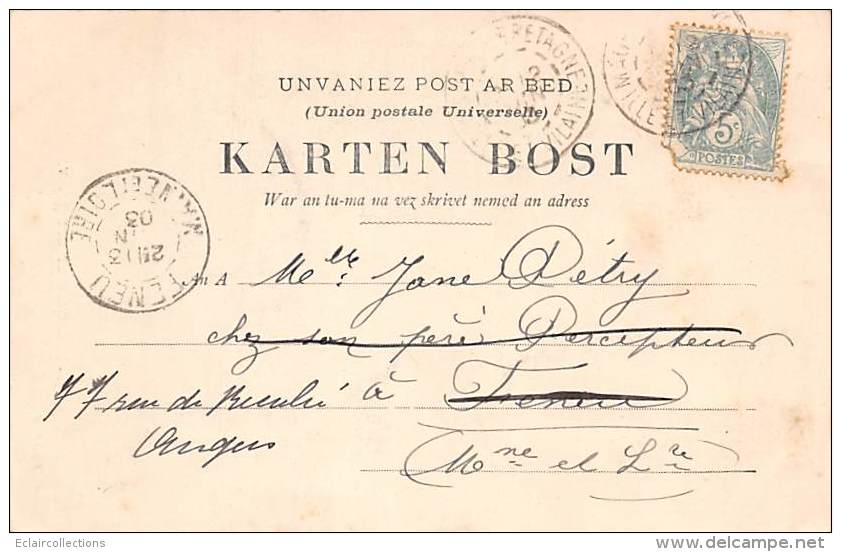 UNVANIEZ POST AR BED
(Union postale Universelle)
KARTEN BOST
War an tu-ma na vez skrivet nemed an adress
5c
POSTES
FENEU
MAINE-ET-LOIRE
03
An A Melle Jane Pétry
chez son père Percepteur
à Feneu
77 rue de
Angers
Mne et Lre
Eclaircollections
delcampe.net